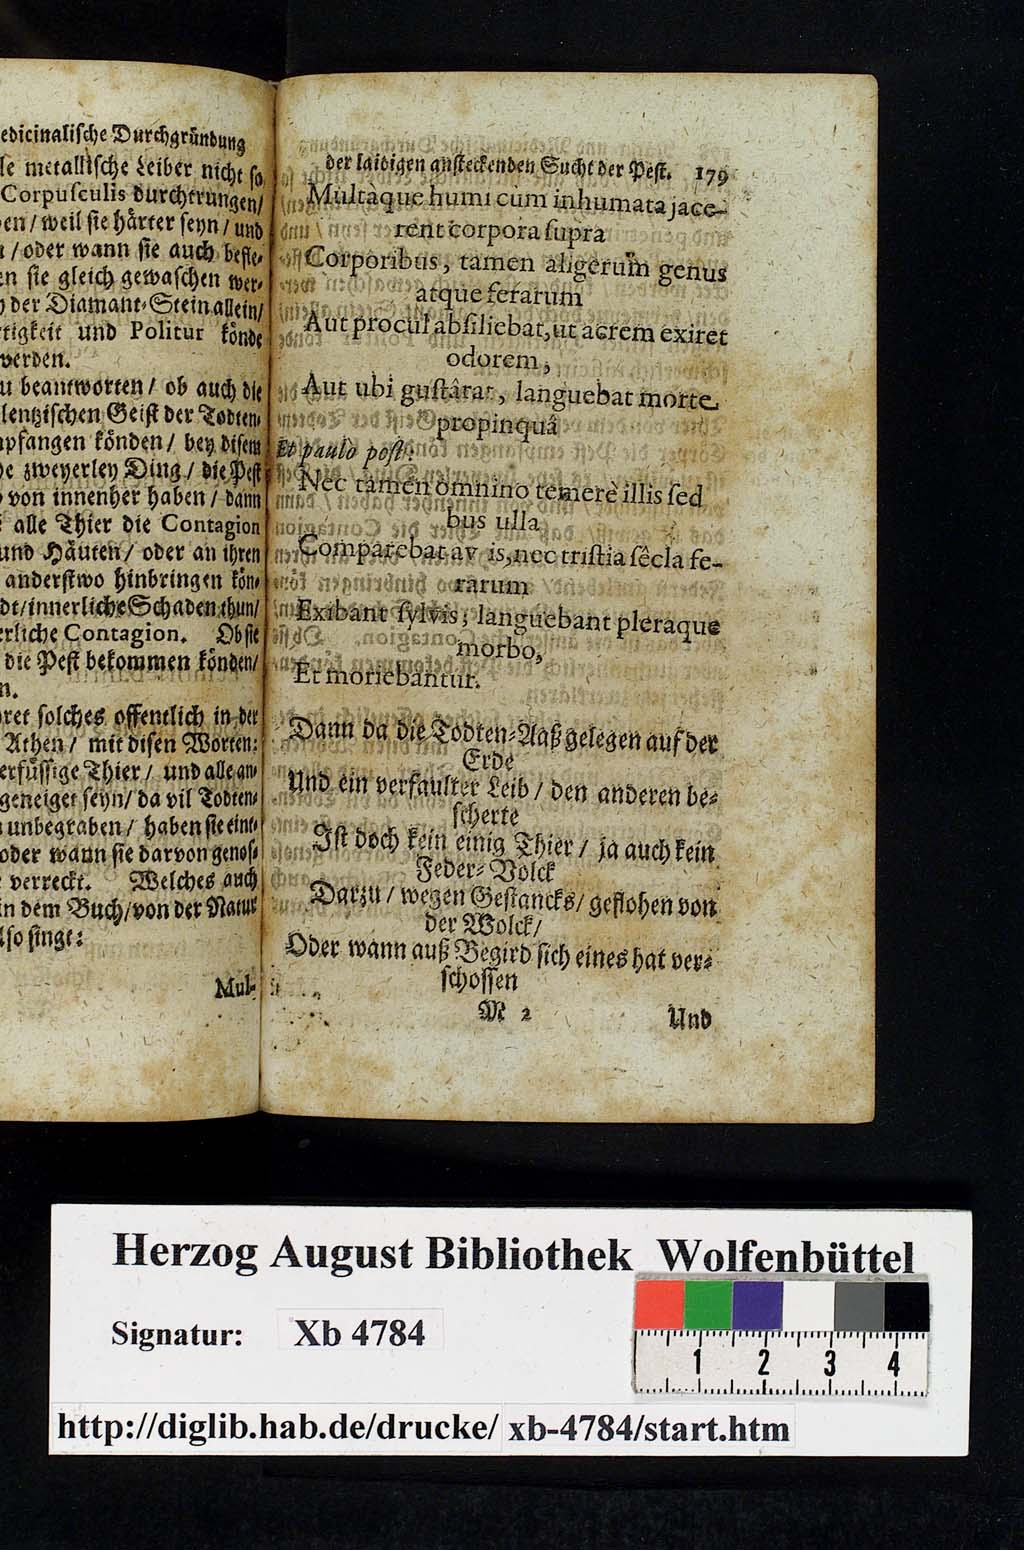 edicinalische Durchgründung
le metallische Leiber nicht so
Corpusculis durchtrungen/
en / weil sie härter seyn / und
/ oder wann sie auch beste-
en sie gleich gewaschen wer-
der Diamant-Stein allein/
tigkeit und Politur könde
werden.
u beantworten / ob auch die
lentzischen Geist der Todten-
pfangen könden / bey disem
e zweyerley Ding / die Pest
von innenher haben / dann
alle Thier die Contagion
und Häuten / oder an ihren
anderstwo hinbringen kön-
dt / innerliche Schaden thun/
rliche Contagion. Ob sie
die Pest bekommen könden/
n.
ret solches offentlich in der
Athen / mit disen Worten:
erfüssige Thier / und alle an-
geneiget seyn / da vil Todten-
unbegraben / haben sie eint-
oder wann sie darvon genos-
verreckt. Welches auch
in dem Buch / von der Natur
lso singt:
Mul-
der laidigen ansteckenden Sucht der Pest. 179
Multàque humi cùm inhumata jace-
rent corpora supra
Corporibus, tamen aligerum genus
atque ferarum
Aut procul absiliebat, ut acrem exiret
odorem,
Aut ubi gustârat, languebat morte
propinquâ
Et paulò post:
Nec tamen omnino temerè illis sed
bus ulla
Comparebat av is, nec tristia sêcla fe-
rarum
Exibant sylvis, languebant pleraque
morbo,
Et moriebantur.
Dann da die Todten-Aaß gelegen auf der
Erde
Und ein verfaulter Leib / den anderen be-
scherte
Ist doch kein einig Thier / ja auch kein
Feder-Volck
Darzu / wegen Gestancks / geflohen von
der Wolck/
Oder wann auß Begird sich eines hat ver-
schossen
M 2
Und
Herzog August Bibliothek Wolfenbüttel
Signatur: Xb 4784
1 2 3 4
http://diglib.hab.de/drucke/ xb-4784/start.htm